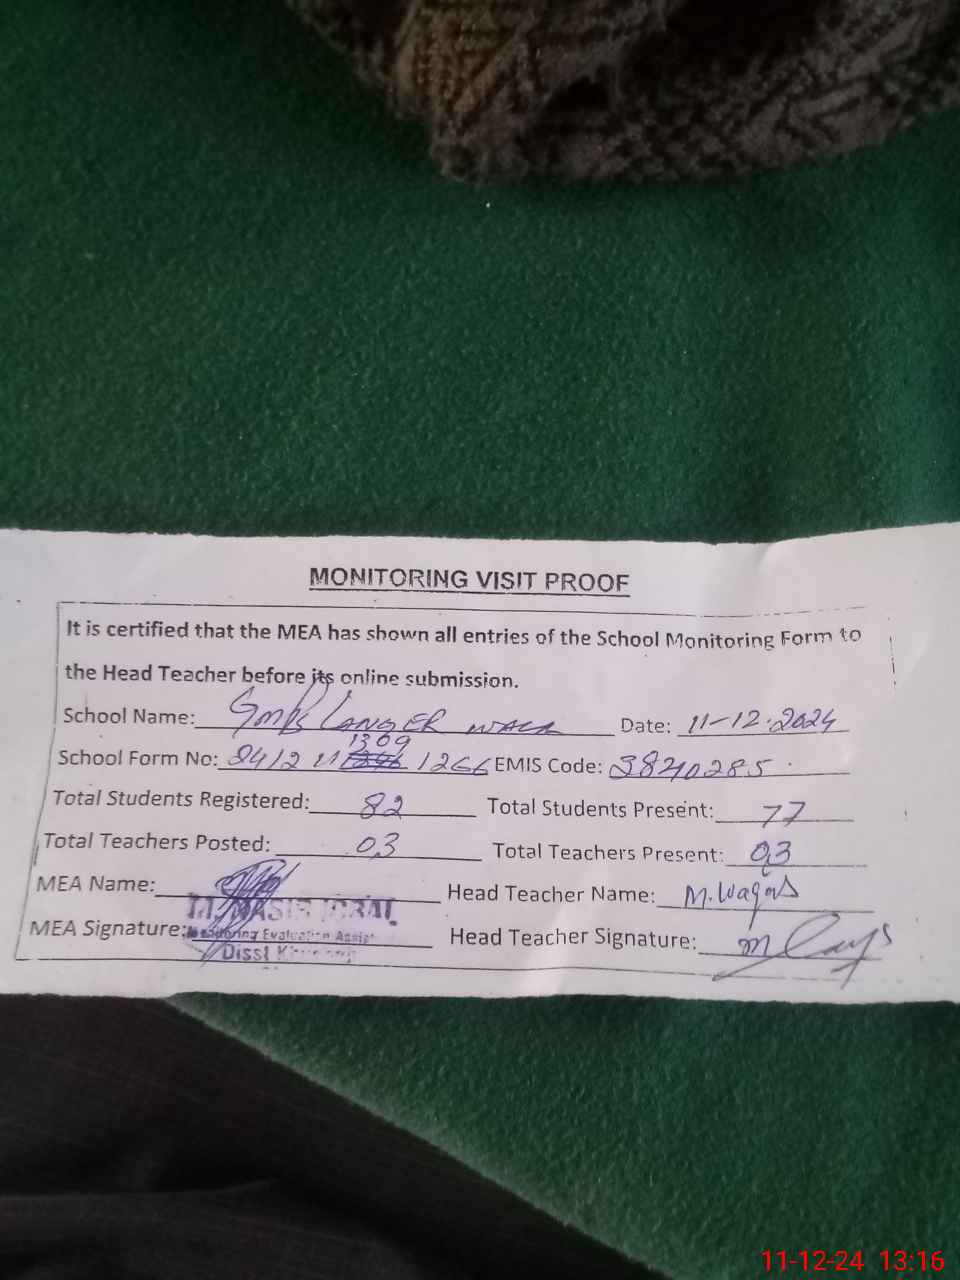 MONITORING VISIT PROOF
It is certified that the MEA has shown all entries of the School Monitoring Form to
the Head Teacher before its online submission.
School Name: GMPS LANGER WALA Date: 11-12-2024
1309
School Form No: 2412 11 1266 EMIS Code: 38240285
Total Students Registered: 82 Total Students Present: 77
Total Teachers Posted: 03 Total Teachers Present: 03
MEA Name: Head Teacher Name: M. Waqas
M. NASIR IQBAL
MEA Signature: Monitoring Evaluation Assist Head Teacher Signature:
Disst
11-12-24 13:16